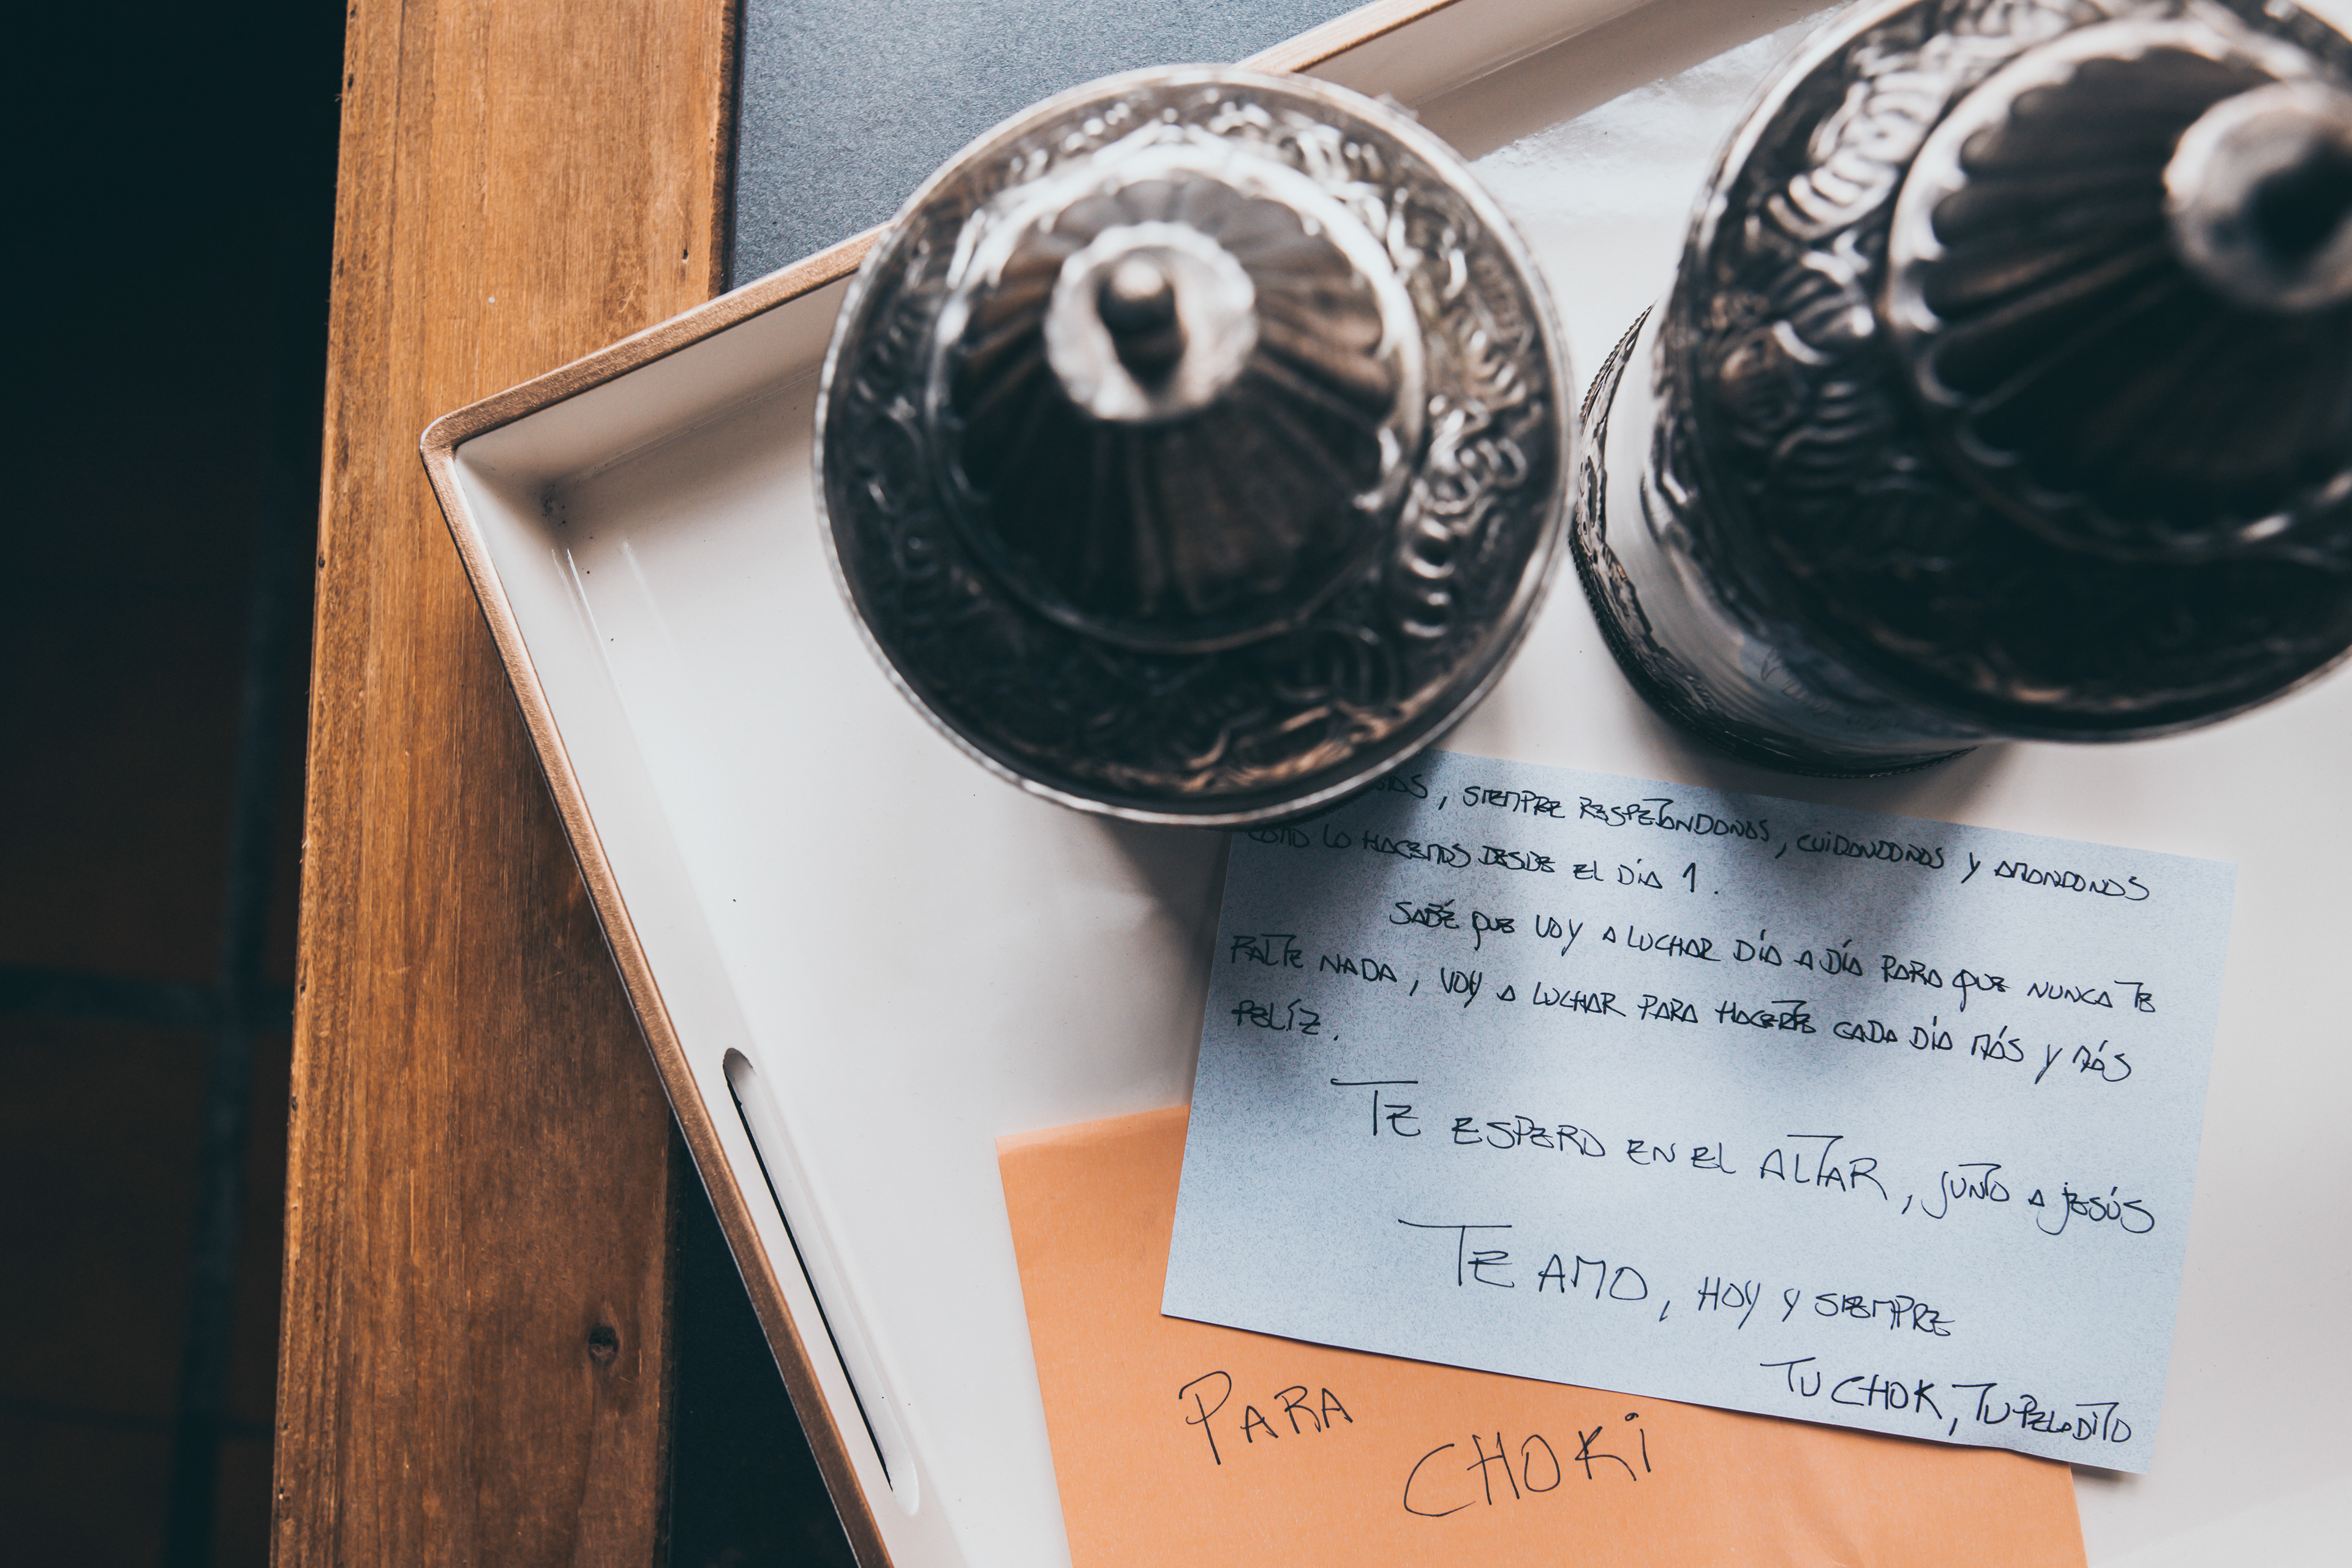 , SIEMPRE RESPETANDONOS, CUIDANDONOS Y AMANDONOS
COMO LO HACEMOS DESDE EL DÍA 1.
SABÉ QUE VOY A LUCHAR DÍA A DÍA PARA QUE NUNCA TE
FALTE NADA, VOY A LUCHAR PARA HACERTE CADA DÍA MÁS Y MÁS
FELÍZ.
TE ESPERO EN EL ALTAR, JUNTO A JESÚS
TE AMO, HOY Y SIEMPRE
TU CHOK, TU PELADITO
PARA
CHOKI